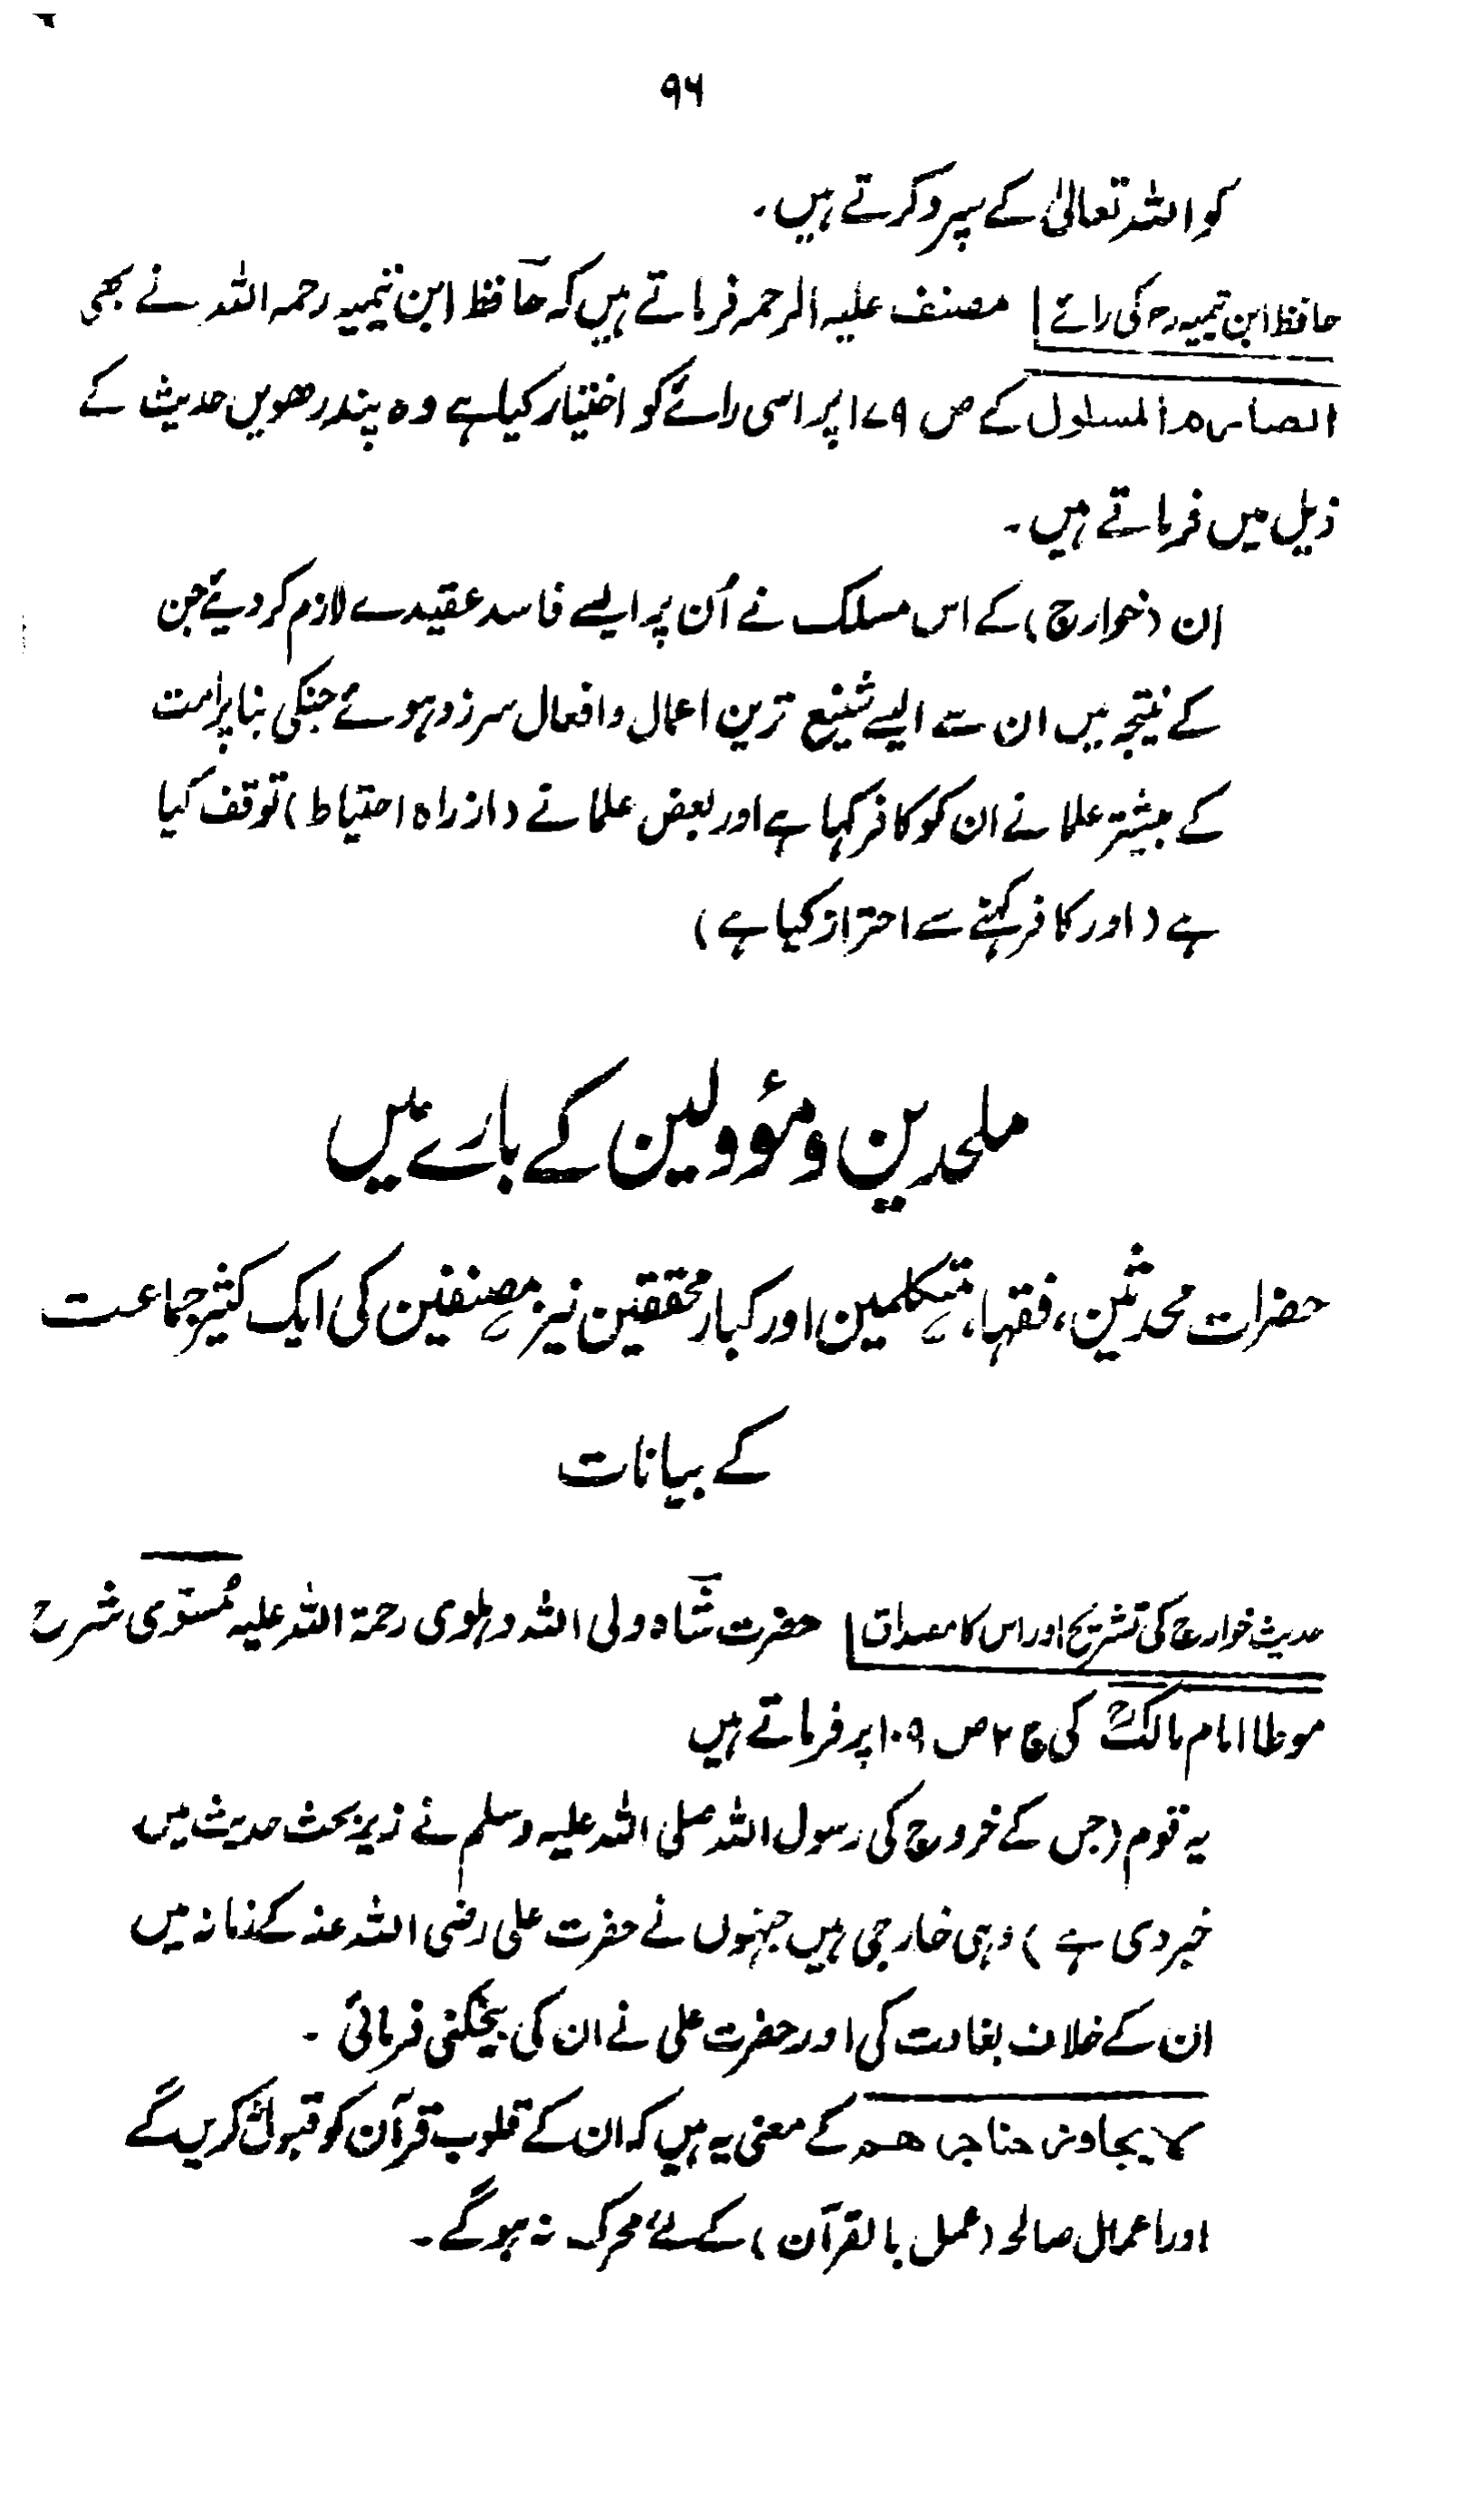 ۹۶
کو اللہ تعالیٰ کے سپرد کرتے ہیں۔
حافظ ابن تیمیہؒ کی رائے مصنف علیہ الرحمہ فرماتے ہیں کہ حافظ ابن تیمیہ رحمہ اللہ نے بھی
الصارم المسلول کے ص ۱۷۹ پر اسی رائے کو اختیار کیا ہے وہ پندرھویں حدیث کے
ذیل میں فرماتے ہیں۔
ان (خوارج) کے اس مسلک نے اُن پر ایسے فاسد عقیدے لازم کر دیئے جن
کے نتیجہ میں ان سے ایسے شنیع ترین اعمال وافعال سرزد ہوئے جنکی بنا پر اُمت
کے بیشتر علما نے ان کو کافر کہا ہے اور بعض علما نے (ازراہ احتیاط) توقف کیا
ہے (اور کافر کہنے سے احتراز کیا ہے)
ملحدین و مؤولین کے بارے میں
حضرات محدثین، فقہا، متکلمین اور کبار محققین نیز مصنفین کی ایک کثیر جماعت
کے بیانات
حدیث خوارج کی تشریح اور اس کا مصداق حضرت شاہ ولی اللہ دہلوی رحمۃ اللہ علیہ مُسَوّیٰ شرح
موطا امام مالکؒ کی ج ۲ ص ۱۰۹ پر فرماتے ہیں
یہ قوم (جس کے خروج کی رسول اللہ صلی اللہ علیہ وسلم نے زیر بحث حدیث میں
خبر دی ہے) وہی خارجی ہیں جنہوں نے حضرت علی رضی اللہ عنہ کے زمانہ میں
ان کے خلاف بغاوت کی اور حضرت علی نے ان کی بیخکنی فرمائی۔
لایجاوز حناجرھم کے معنی یہ ہیں کہ ان کے قلوب قرآن کو قبول نہ کریں گے
اور اعمال صالحہ (عمل بالقرآن) کے لئے محرک نہ ہوگے۔